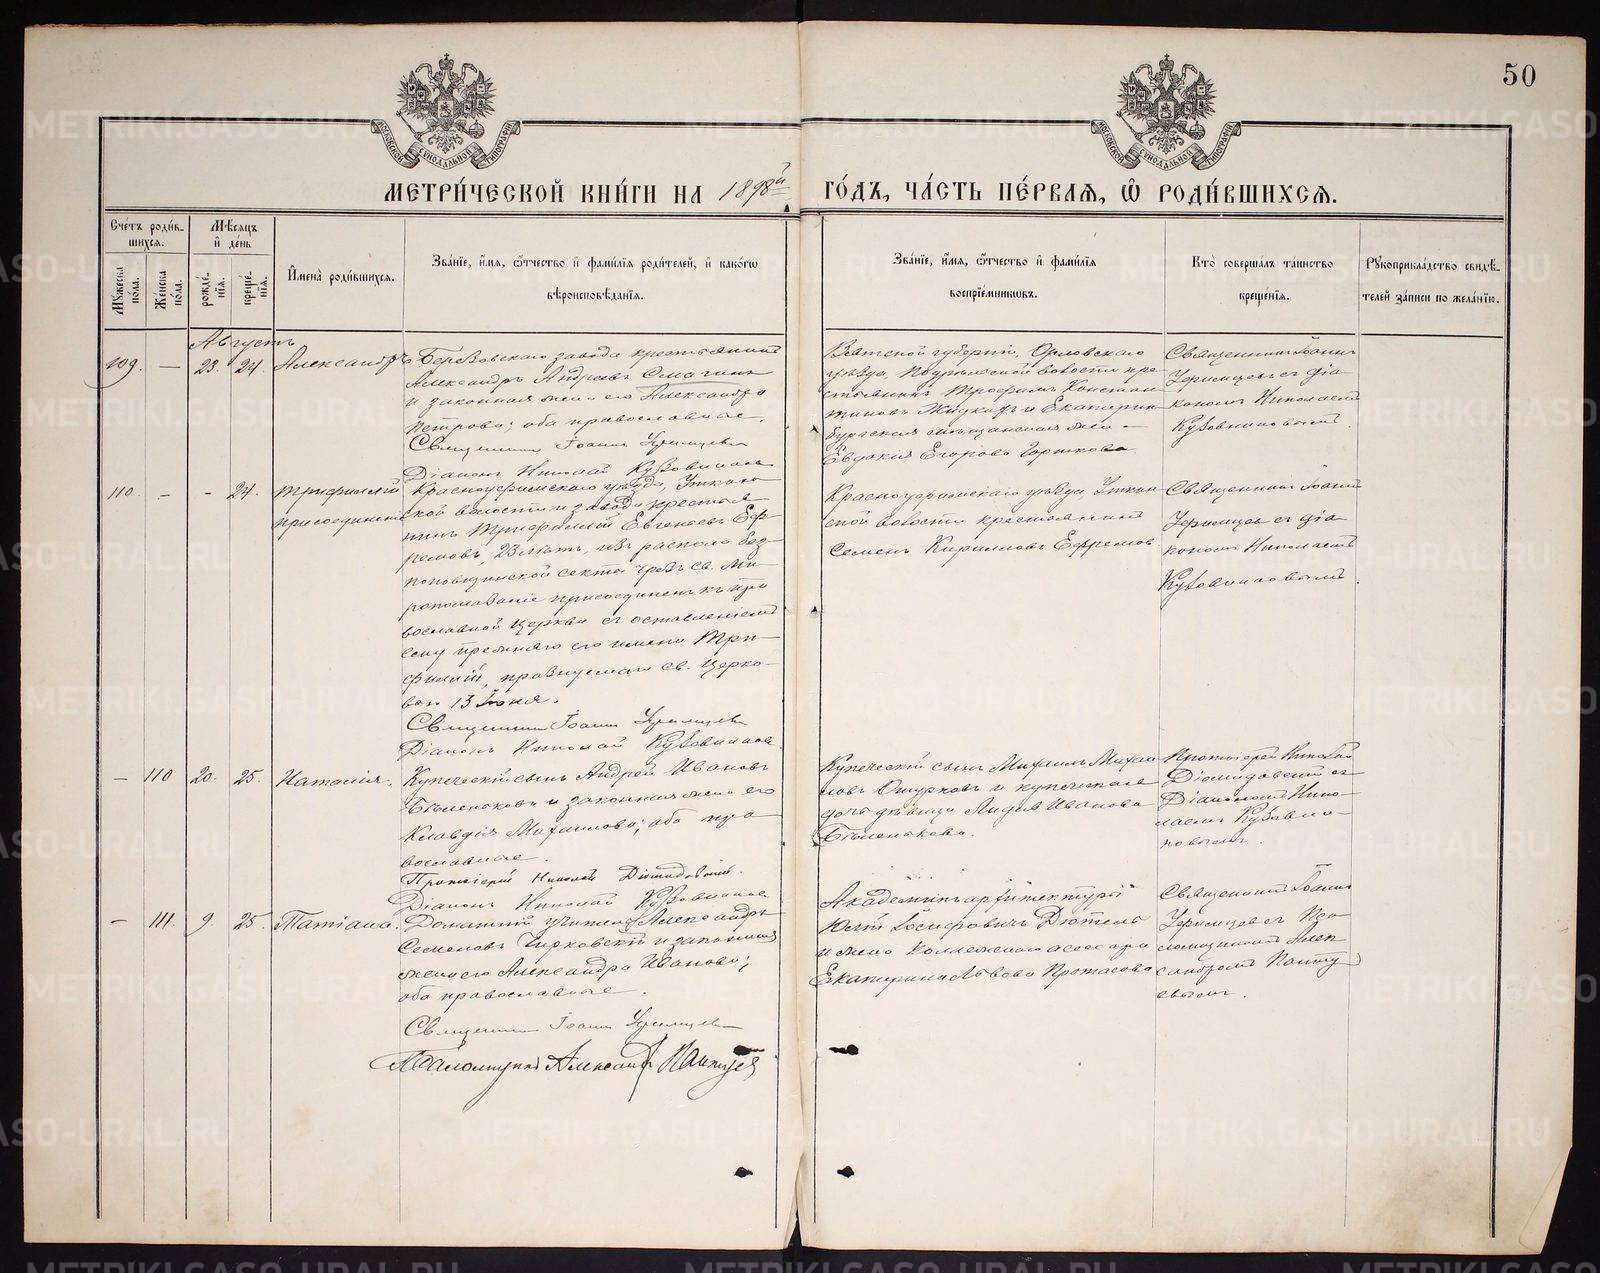 50
МОСКОВСКОЙ СѴНОДАЛЬНОЙ ТИПОГРАФІИ
МОСКОВСКОЙ СѴНОДАЛЬНОЙ ТИПОГРАФІИ
МЕТРИ́ЧЕСКОЙ КНИ́ГИ НА 1898й ГО́ДЪ, ЧА́СТЬ ПЕ́РВАЯ, Ѡ РОДИ́ВШИХСЯ.
Сче́тъ роди́в-
шихся.
Мѣ́сяцъ
и҆ де́нь
Мꙋ́жеска
по́ла.
Же́нска
по́ла.
рожде́-
нїя.
креще́-
нїя.
И҆мена̀ роди́вшихся.
Зва́нїе, и҆́мя, ѻ҆́тчество и҆ фами́лїя роди́телей, и҆ како́гѡ
вѣроисповѣ́данїя.
Зва́нїе, и҆́мя, ѻ҆́тчество и҆ фами́лїя
воспрїе́мникѡвъ.
Кто̀ соверша́лъ та́инство
креще́нїя.
Рꙋкоприкла́дство свидѣ́-
телей за́писи по жела́нїю.
Августъ
109. – 23. 24. Александръ
Березовскаго завода крестьянинъ
Александръ Андреевъ Смагинъ
и законная жена его Александра
Петрова; оба православные.
Священникъ Іоаннъ
Діаконъ Николай Кузовниковъ
Вятской губерніи, Орловскаго
уѣзда, волости кре-
стьянинъ Трофимъ Констан-
тиновъ Жидкихъ и Екатерин-
бургская мѣщанская жена
Евдокія Егорова Горшкова
Священникъ Іоаннъ
съ діа-
кономъ Николаемъ
Кузовниковымъ.
110. – – 24. Трифиллій
присоединенный
Красноуфимскаго уѣзда, Уткин-
ской волости и завода крестья-
нинъ Трифиллій Евгеніевъ Еф-
ремовъ, 23 лѣтъ, изъ раскола без-
поповщинской секты чрезъ св. Ми-
ропомазаніе присоединенъ къ пра-
вославной церкви съ оставленіемъ
ему прежняго его имени Три-
филлій, празднуемаго св. Церко-
вью 13 Іюня.
Священникъ Іоаннъ
Діаконъ Николай Кузовниковъ
Красноуфимскаго уѣзда, Уткин-
ской волости крестьянинъ
Семенъ Кирилловъ Ефремовъ.
Священникъ Іоаннъ
съ діа-
кономъ Николаемъ
Кузовниковымъ.
– 110 20. 25. Наталія.
Купеческій сынъ Андрей Ивановъ
Бѣленьковъ и законная жена его
Клавдія Михаилова; оба пра-
вославные.
Протоіерей Николай Діомидовскій.
Діаконъ Николай Кузовниковъ
Купеческій сынъ Михаилъ Михаи-
ловъ Ошурковъ и купеческая
дочь дѣвица Лидія Иванова
Бѣленькова.
Протоіерей Николай
Діомидовскій съ
Діакономъ Нико-
лаемъ Кузовни-
ковымъ.
– 111. 9. 25. Татіана.
Домашній учитель Александръ
Семеновъ и законная
жена его Александра Иванова;
оба православные.
Священникъ Іоаннъ
Псаломщикъ Александръ Пантуевъ
Академикъ архитектуры
Юлій Іосифовичъ Дютель
и жена Коллежскаго ассесора
Екатерина Львова Протасова
Священникъ Іоаннъ
съ Пса-
ломщикомъ Алек-
сандромъ Панту-
евымъ.
METRIKI.GASO-URAL.RU